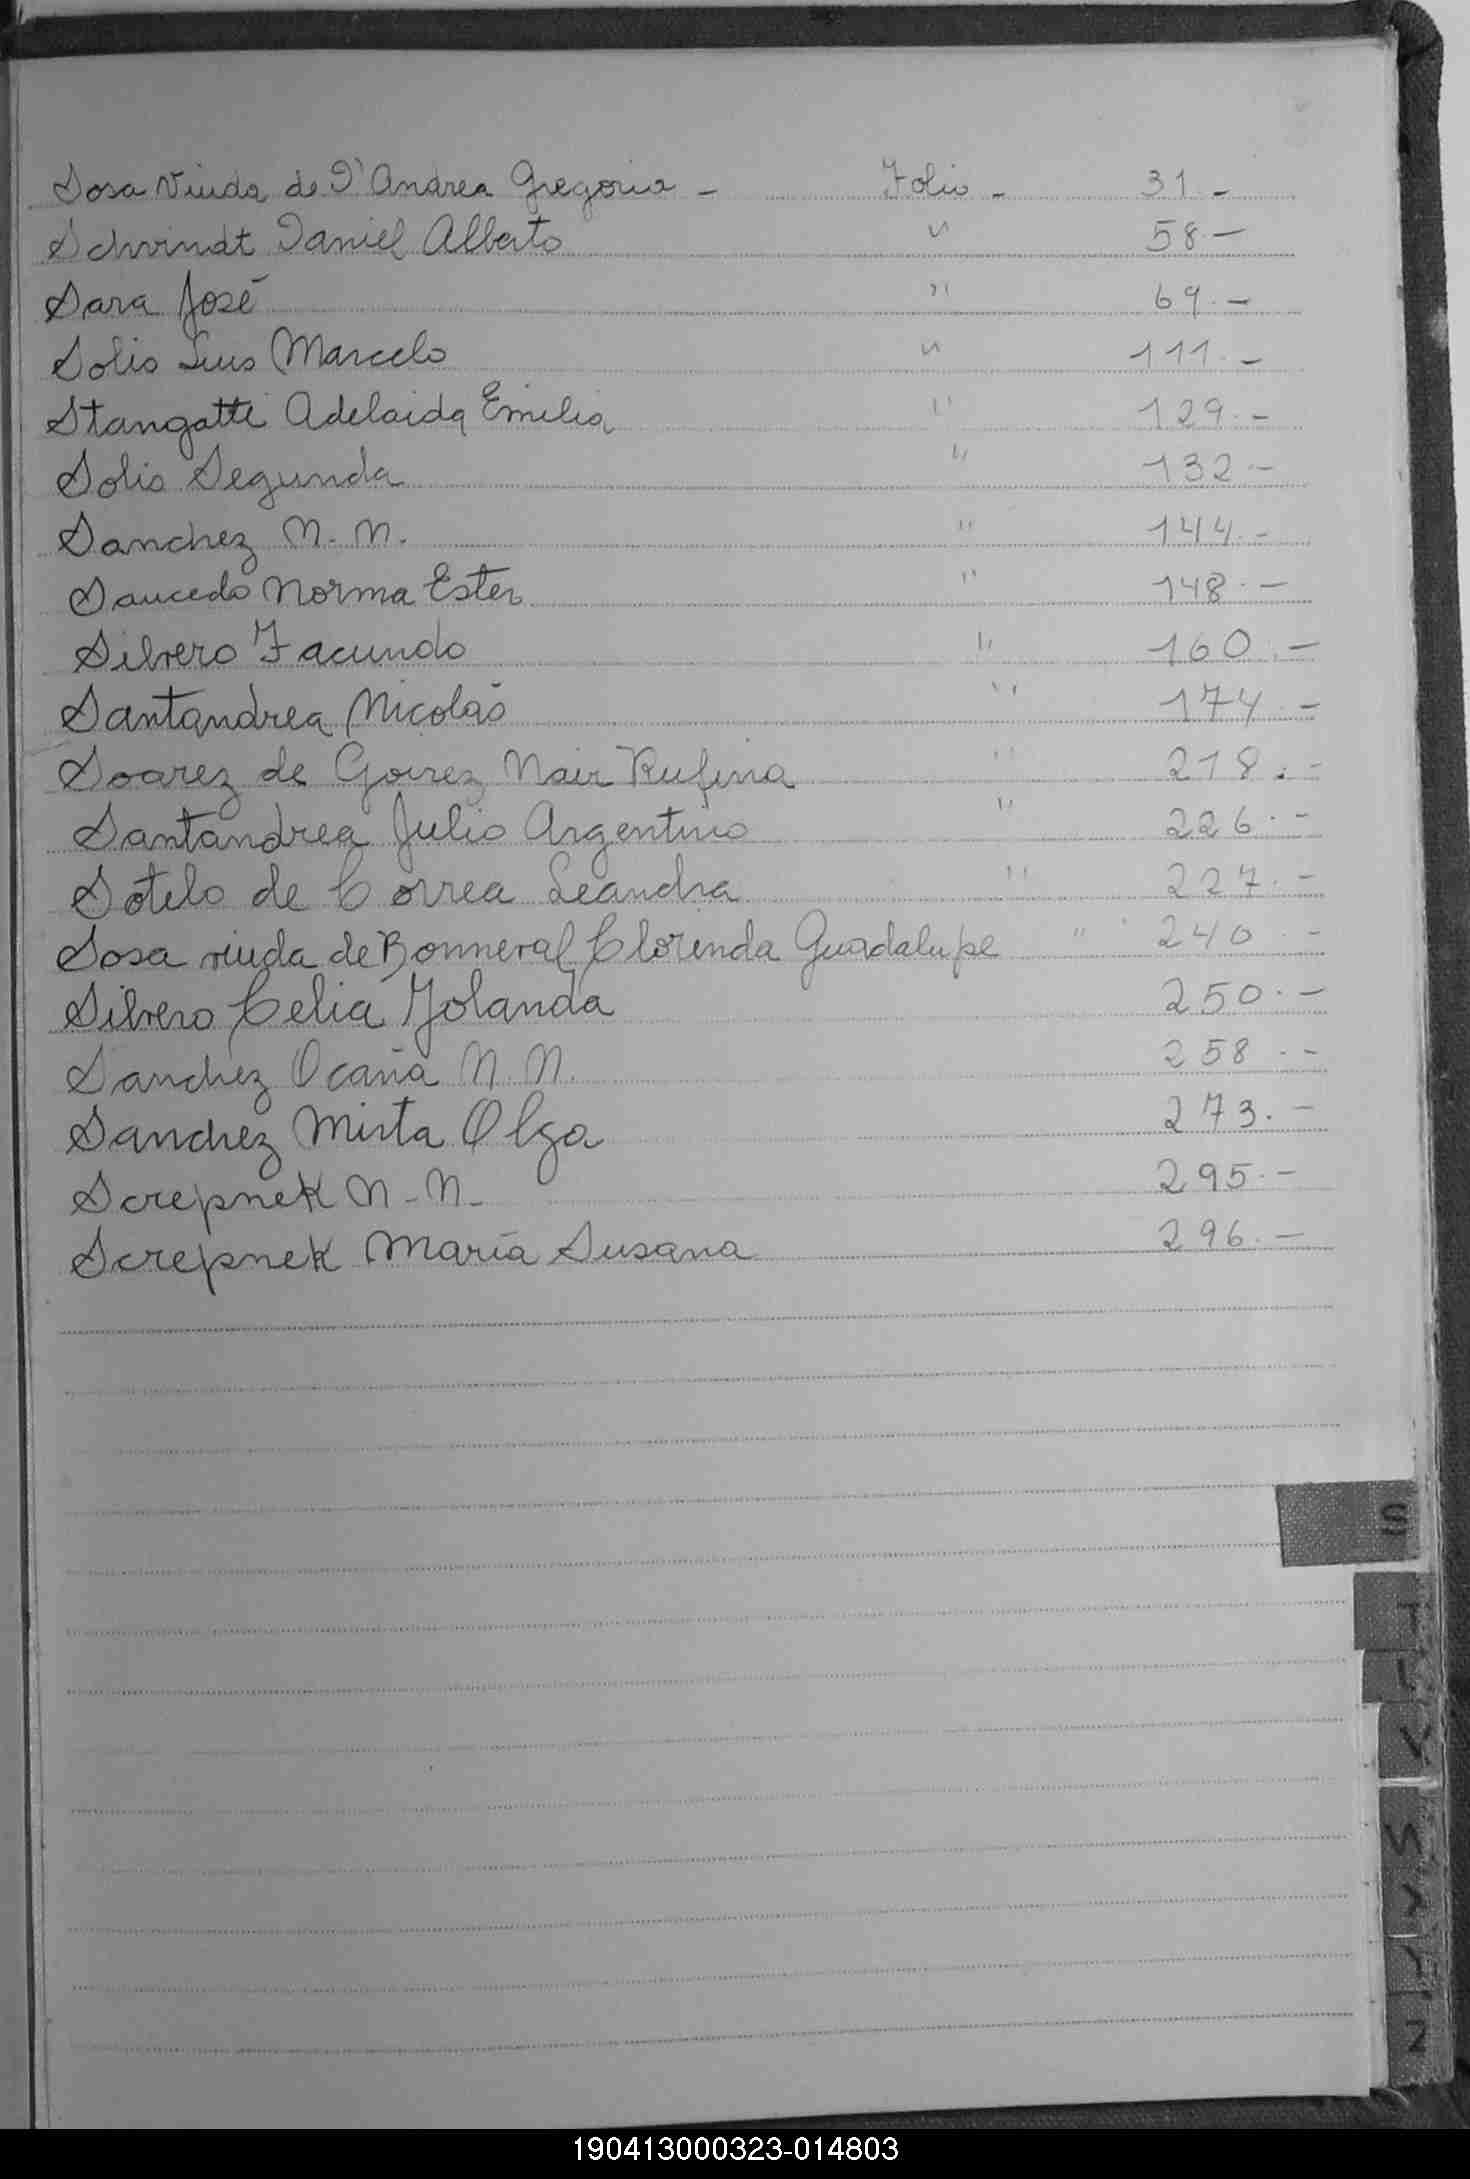 Sosa Viuda de D'Andrea Gregoria - Folio - 31 -
Schvindt Daniel Alberto " 58.-
Sara José " 69.-
Solis Luis Marcelo " 111.-
Stangatti Adelaida Emilia " 129.-
Solis Segunda " 132.-
Sanchez N. N. " 144.-
Saucedo Norma Ester " 148.-
Silvero Facundo " 160.-
Santandrea Nicolás " 174.-
Soarez de Goirez Nair Rufina " 218.-
Santandrea Julio Argentino " 226.-
Sotelo de Correa Leandra " 227.-
Sosa viuda de Bonneral Clorinda Guadalupe " 240.-
Silvero Celia Yolanda 250.-
Sanchez Ocaña N. N. 258.-
Sanchez Mirta Olga 273.-
Screpnek N. N. 295.-
Screpnek María Susana 296.-
S
T
V
Z
190413000323-014803